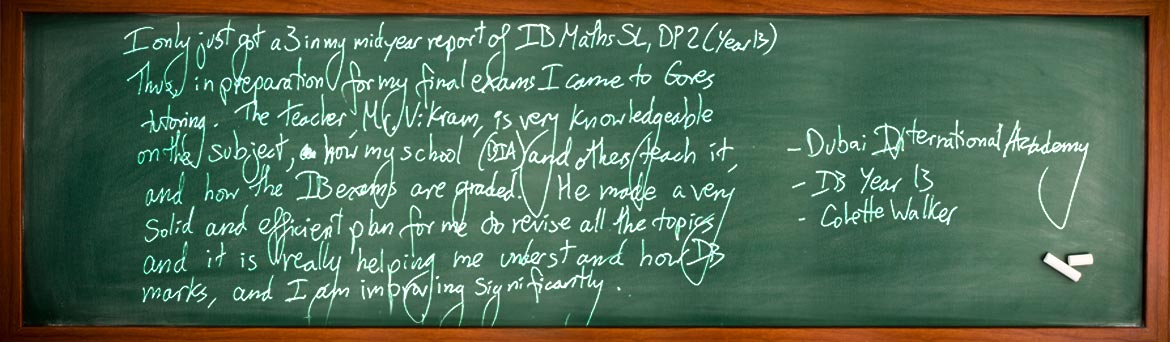 I only just got a 3 in my midyear report of IB Maths SL, DP2 (Year 13)
Thus, in preparation for my final exams I came to Gores
tutoring. The teacher, Mr. Vikram, is very knowledgeable
on the subject, how my school (DIA) and others teach it,
and how the IB exams are graded. He made a very
solid and efficient plan for me to revise all the topics,
and it is really helping me understand how IB
marks, and I am improving significantly.
- Dubai International Academy
- IB Year 13
- Colette Walker